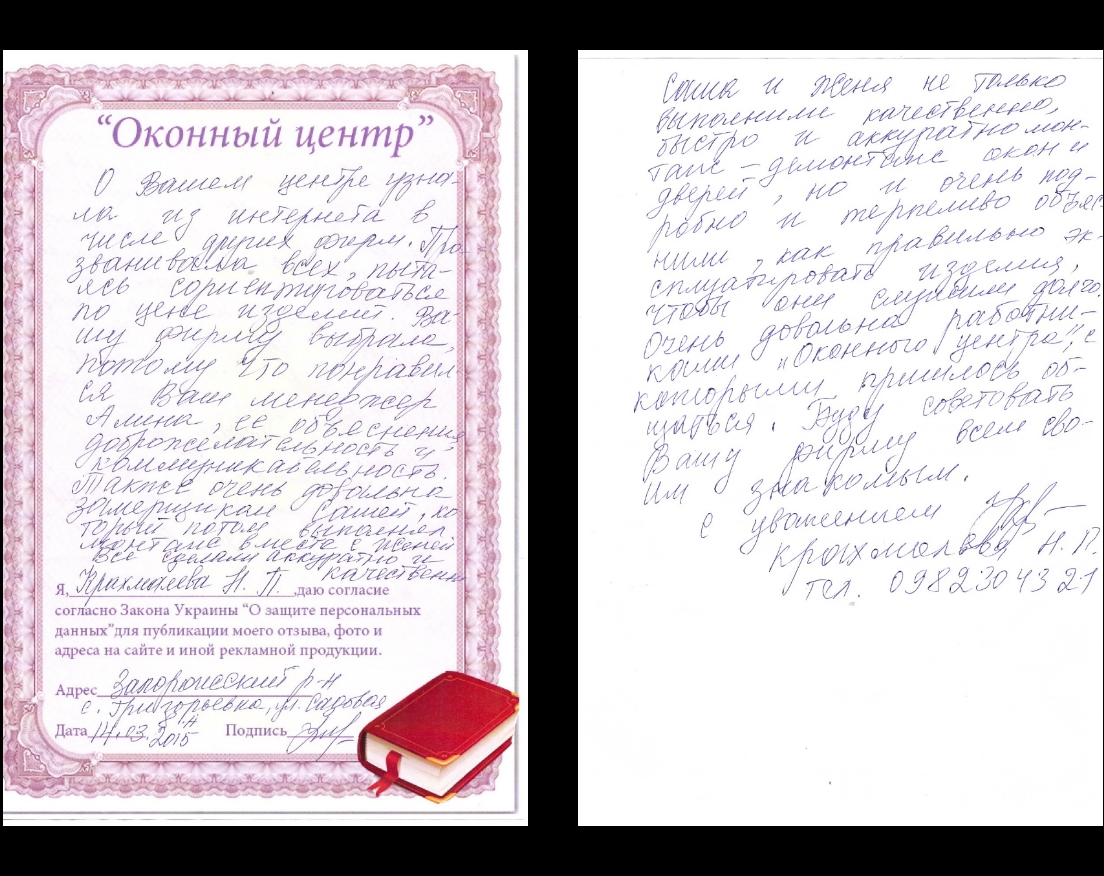 “Оконный центр”
О Вашем центре узна-
ла из интернета в
числе других фирм. Про
званивала всех, пыта-
ясь сориентироваться
по цене изделий. Ва-
шу фирму выбрала,
потому что понравил
ся Ваш менеджер
Алина, её объяснения
доброжелательность и
коммуникабельность.
Также очень довольна
замерщиком Сашей, ко
торый потом выполнял
монтаж вместе с Женей
Все сделали аккуратно и
качественно
Я, Крахмалева Н. П. ,даю согласие
согласно Закона Украины “О защите персональных
данных”для публикации моего отзыва, фото и
адреса на сайте и иной рекламной продукции.
Адрес Запорожский р-н
с. Григорьевка, ул. Садовая
Дата 14.03. 2015 Подпись
Саша и Женя не только
выполнили качественно,
быстро и аккуратно мон-
таж - демонтаж окон и
дверей, но и очень под-
робно и терпеливо объяс
нили, как правильно эк-
сплуатировать изделия,
чтобы они служили долго.
Очень довольна работни-
ками "Оконного центра", с
которыми пришлось об-
щаться. Буду советовать
Вашу фирму всем сво-
им знакомым.
С уважением
Крахмалева Н. П.
тел. 0982304321